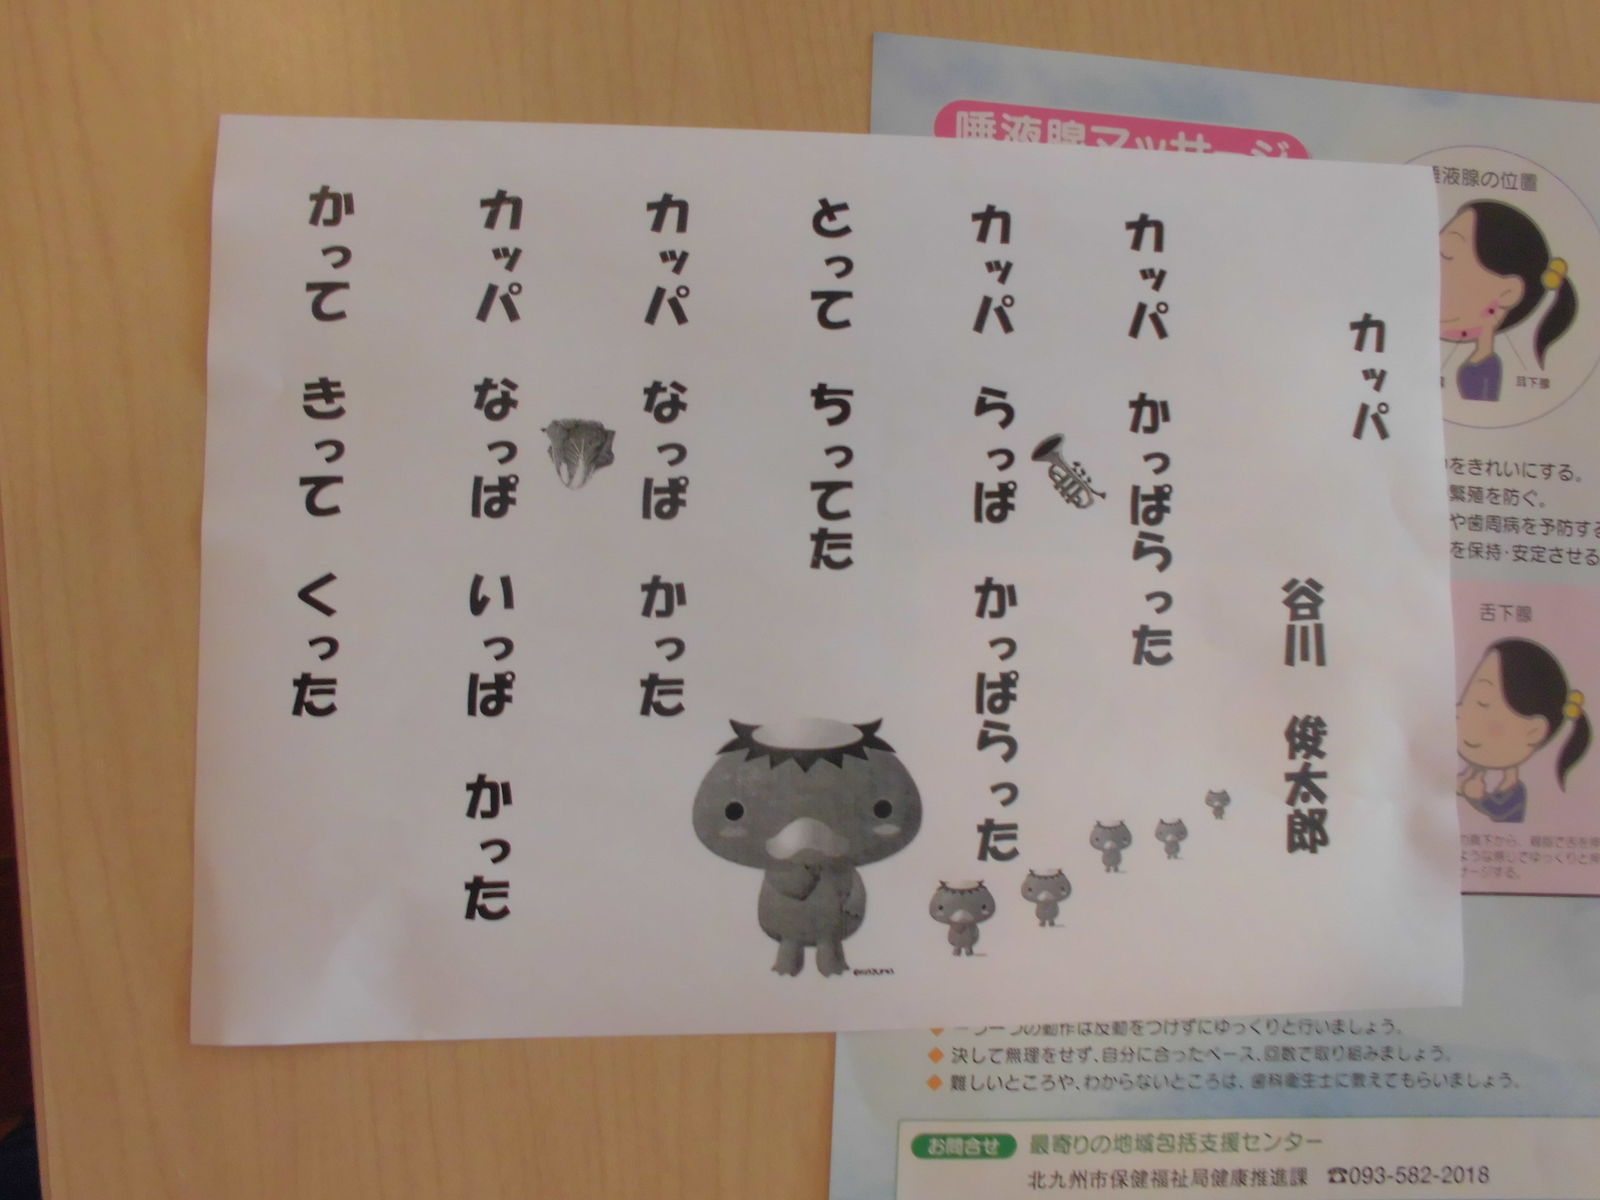 カッパ
谷川 俊太郎
カッパ かっぱらった
カッパ らっぱ かっぱらった
とって ちってた
カッパ なっぱ かった
カッパ なっぱ いっぱ かった
かって きって くった
唾液腺マッサージ
唾液腺の位置
耳下腺
をきれいにする。
繁殖を防ぐ。
や歯周病を予防する
を保持・安定させる
舌下腺
一つ一つの動作は反動をつけずにゆっくりと行いましょう。
決して無理をせず、自分に合ったペース、回数で取り組みましょう。
難しいところや、わからないところは、歯科衛生士に教えてもらいましょう。
お問合せ 最寄りの地域包括支援センター
北九州市保健福祉局健康推進課 ☎093-582-2018